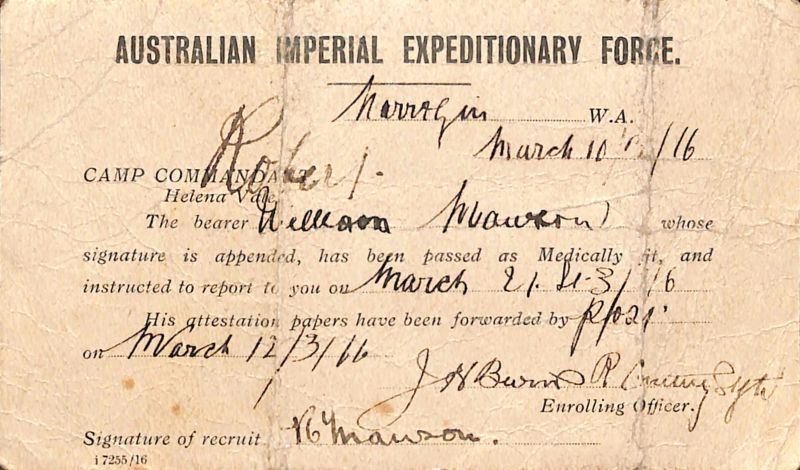 AUSTRALIAN IMPERIAL EXPEDITIONARY FORCE.
Narrogin W.A.
March 10 /16
CAMP COMMANDANT
Robert
Helena Vale
The bearer William Mawson whose
signature is appended, has been passed as Medically fit, and
instructed to report to you on March 21. st 3/16
His attestation papers have been forwarded by post
on March 12/3/16
J H Burns R
Enrolling Officer.
Signature of recruit Mawson.
i 7255/16